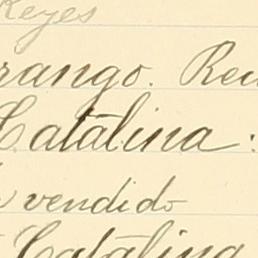 Reyes
rango. Rei
Catalina:
vendido
Catalina